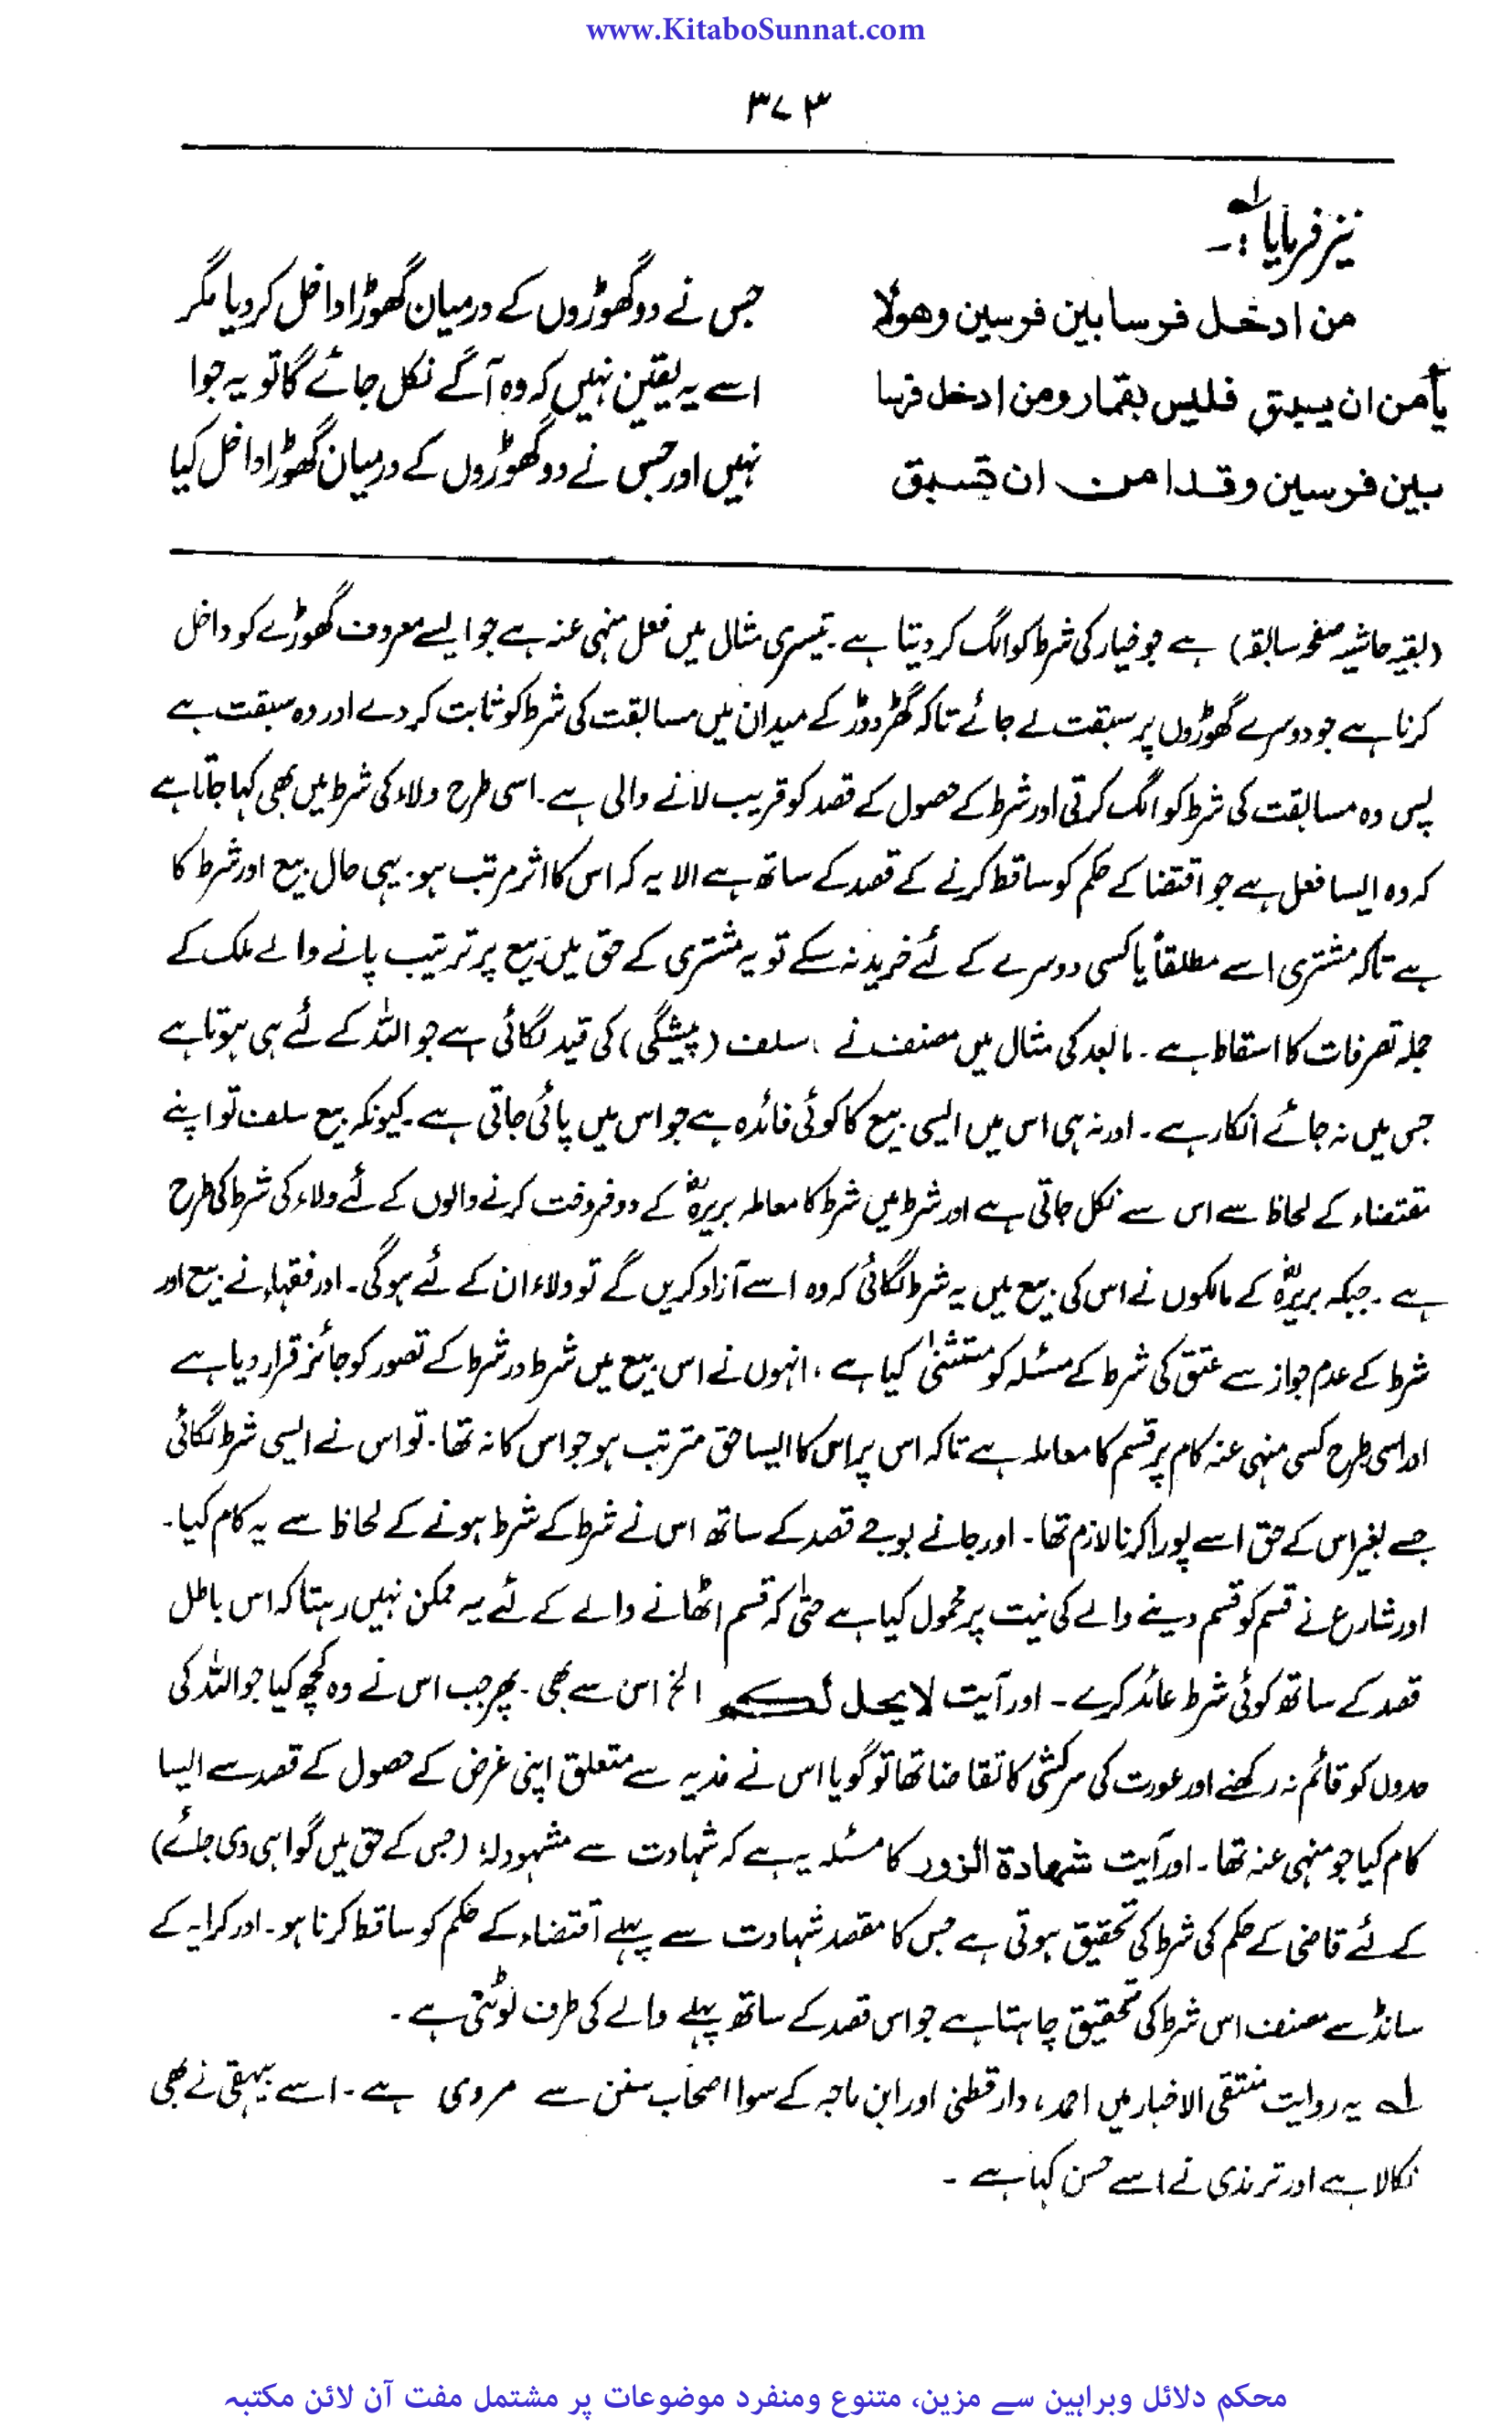 www.KitaboSunnat.com
۳۷۳
نیز فرمایا ؎۱ :-
من ادخل فرسا بین فرسین وهو لا
یأمن ان یسبق فلیس بقمار ومن ادخل فرسا
بین فرسین وقد امن ان تسبق
جس نے دو گھوڑوں کے درمیان گھوڑا داخل کر دیا مگر
اسے یہ یقین نہیں کہ وہ آگے نکل جائے گا تو یہ جوا
نہیں اور جس نے دو گھوڑوں کے درمیان گھوڑا داخل کیا
(بقیہ حاشیہ صفحہ سابقہ) ہے جو خیار کی شرط کو الگ کر دیتا ہے ۔ تیسری مثال میں فعل منہی عنہ ہے جو ایسے معروف گھوڑے کو داخل
کرنا ہے جو دوسرے گھوڑوں پر سبقت لے جائے تاکہ گھڑ دوڑ کے میدان میں مسابقت کی شرط کو ثابت کر دے اور وہ سبقت ہے
پس وہ مسابقت کی شرط کو الگ کرتی اور شرط کے حصول کے قصد کو قریب لانے والی ہے ۔ اسی طرح ولاء کی شرط میں بھی کہا جاتا ہے
کہ وہ ایسا فعل ہے جو اقتضا کے حکم کو ساقط کرنے کے قصد کے ساتھ ہے الا یہ کہ اس کا اثر مرتب ہو ۔ یہی حال بیع اور شرط کا
ہے تاکہ مشتری اسے مطلقاً یا کسی دوسرے کے لئے خرید نہ سکے تو یہ مشتری کے حق میں بیع پر ترتیب پانے والے ملک کے
جملہ تصرفات کا اسقاط ہے ۔ مابعد کی مثال میں مصنف نے ، سلف (پیشگی) کی قید لگائی ہے جو اللہ کے لئے ہی ہوتا ہے
جس میں نہ جائے انکار ہے ۔ اور نہ ہی اس میں ایسی بیع کا کوئی فائدہ ہے جو اس میں پائی جاتی ہے ۔ کیونکہ بیع سلف تو اپنے
مقتضاء کے لحاظ سے اس سے نکل جاتی ہے اور شرط میں شرط کا معاملہ بریرہؓ کے دو فروخت کرنے والوں کے لئے ولاء کی شرط کی طرح
ہے ۔ جبکہ بریرہؓ کے مالکوں نے اس کی بیع میں یہ شرط لگائی کہ وہ اسے آزاد کریں گے تو ولاء ان کے لئے ہو گی ۔ اور فقہاء نے بیع اور
شرط کے عدم جواز سے عتق کی شرط کے مسئلہ کو مستثنیٰ کیا ہے ، انہوں نے اس بیع میں شرط در شرط کے تصور کو جائز قرار دیا ہے
اور اسی طرح کسی منہی عنہ کام پر قسم کا معاملہ ہے تاکہ اس پر اس کا ایسا حق مترتب ہو جو اس کا نہ تھا ۔ تو اس نے ایسی شرط لگائی
جسے بغیر اس کے حق اسے پورا کرنا لازم تھا ۔ اور جانے بوجھے قصد کے ساتھ اس نے شرط کے شرط ہونے کے لحاظ سے یہ کام کیا ۔
اور شارع نے قسم کو قسم دینے والے کی نیت پر محمول کیا ہے حتیٰ کہ قسم اٹھانے والے کے لئے یہ ممکن نہیں رہتا کہ اس باطل
قصد کے ساتھ کوئی شرط عائد کرے ۔ اور آیت لا یحل لکم الخ اس سے بھی ۔ پھر جب اس نے وہ کچھ کیا جو اللہ کی
حدوں کو قائم نہ رکھنے اور عورت کی سرکشی کا تقاضا تھا تو گویا اس نے فدیہ سے متعلق اپنی غرض کے حصول کے قصد سے ایسا
کام کیا جو منہی عنہ تھا ۔ اور آیت شهادة الزور کا مسئلہ یہ ہے کہ شہادت سے مشہود لہٗ (جس کے حق میں گواہی دی جائے)
کے لئے قاضی کے حکم کی شرط کی تحقیق ہوتی ہے جس کا مقصد شہادت سے پہلے اقتضاء کے حکم کو ساقط کرنا ہو ۔ اور کرایہ کے
سانڈ سے مصنف اس شرط کی تحقیق چاہتا ہے جو اس قصد کے ساتھ پہلے والے کی طرف لوٹتی ہے ۔
؎۱ یہ روایت منتقی الاخبار میں احمد ، دارقطنی اور ابن ماجہ کے سوا اصحاب سنن سے مروی ہے ۔ اسے بیہقی نے بھی
نکالا ہے اور ترمذی نے اسے حسن کہا ہے ۔
محکم دلائل وبراہین سے مزین، متنوع ومنفرد موضوعات پر مشتمل مفت آن لائن مکتبہ